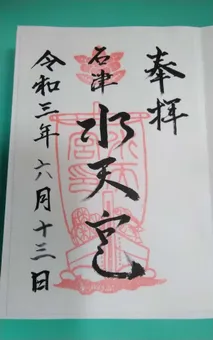 奉拝
石津
水天宮
令和三年六月十三日